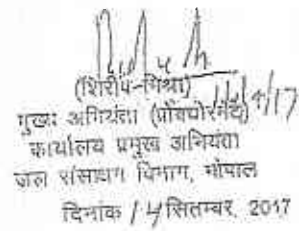 (शिरीष मिश्रा)
मुख्य अभियंता (प्रोक्योरमेंट)
कार्यालय प्रमुख अभियंता
जल संसाधन विभाग, भोपाल
दिनांक 14 सितम्बर, 2017